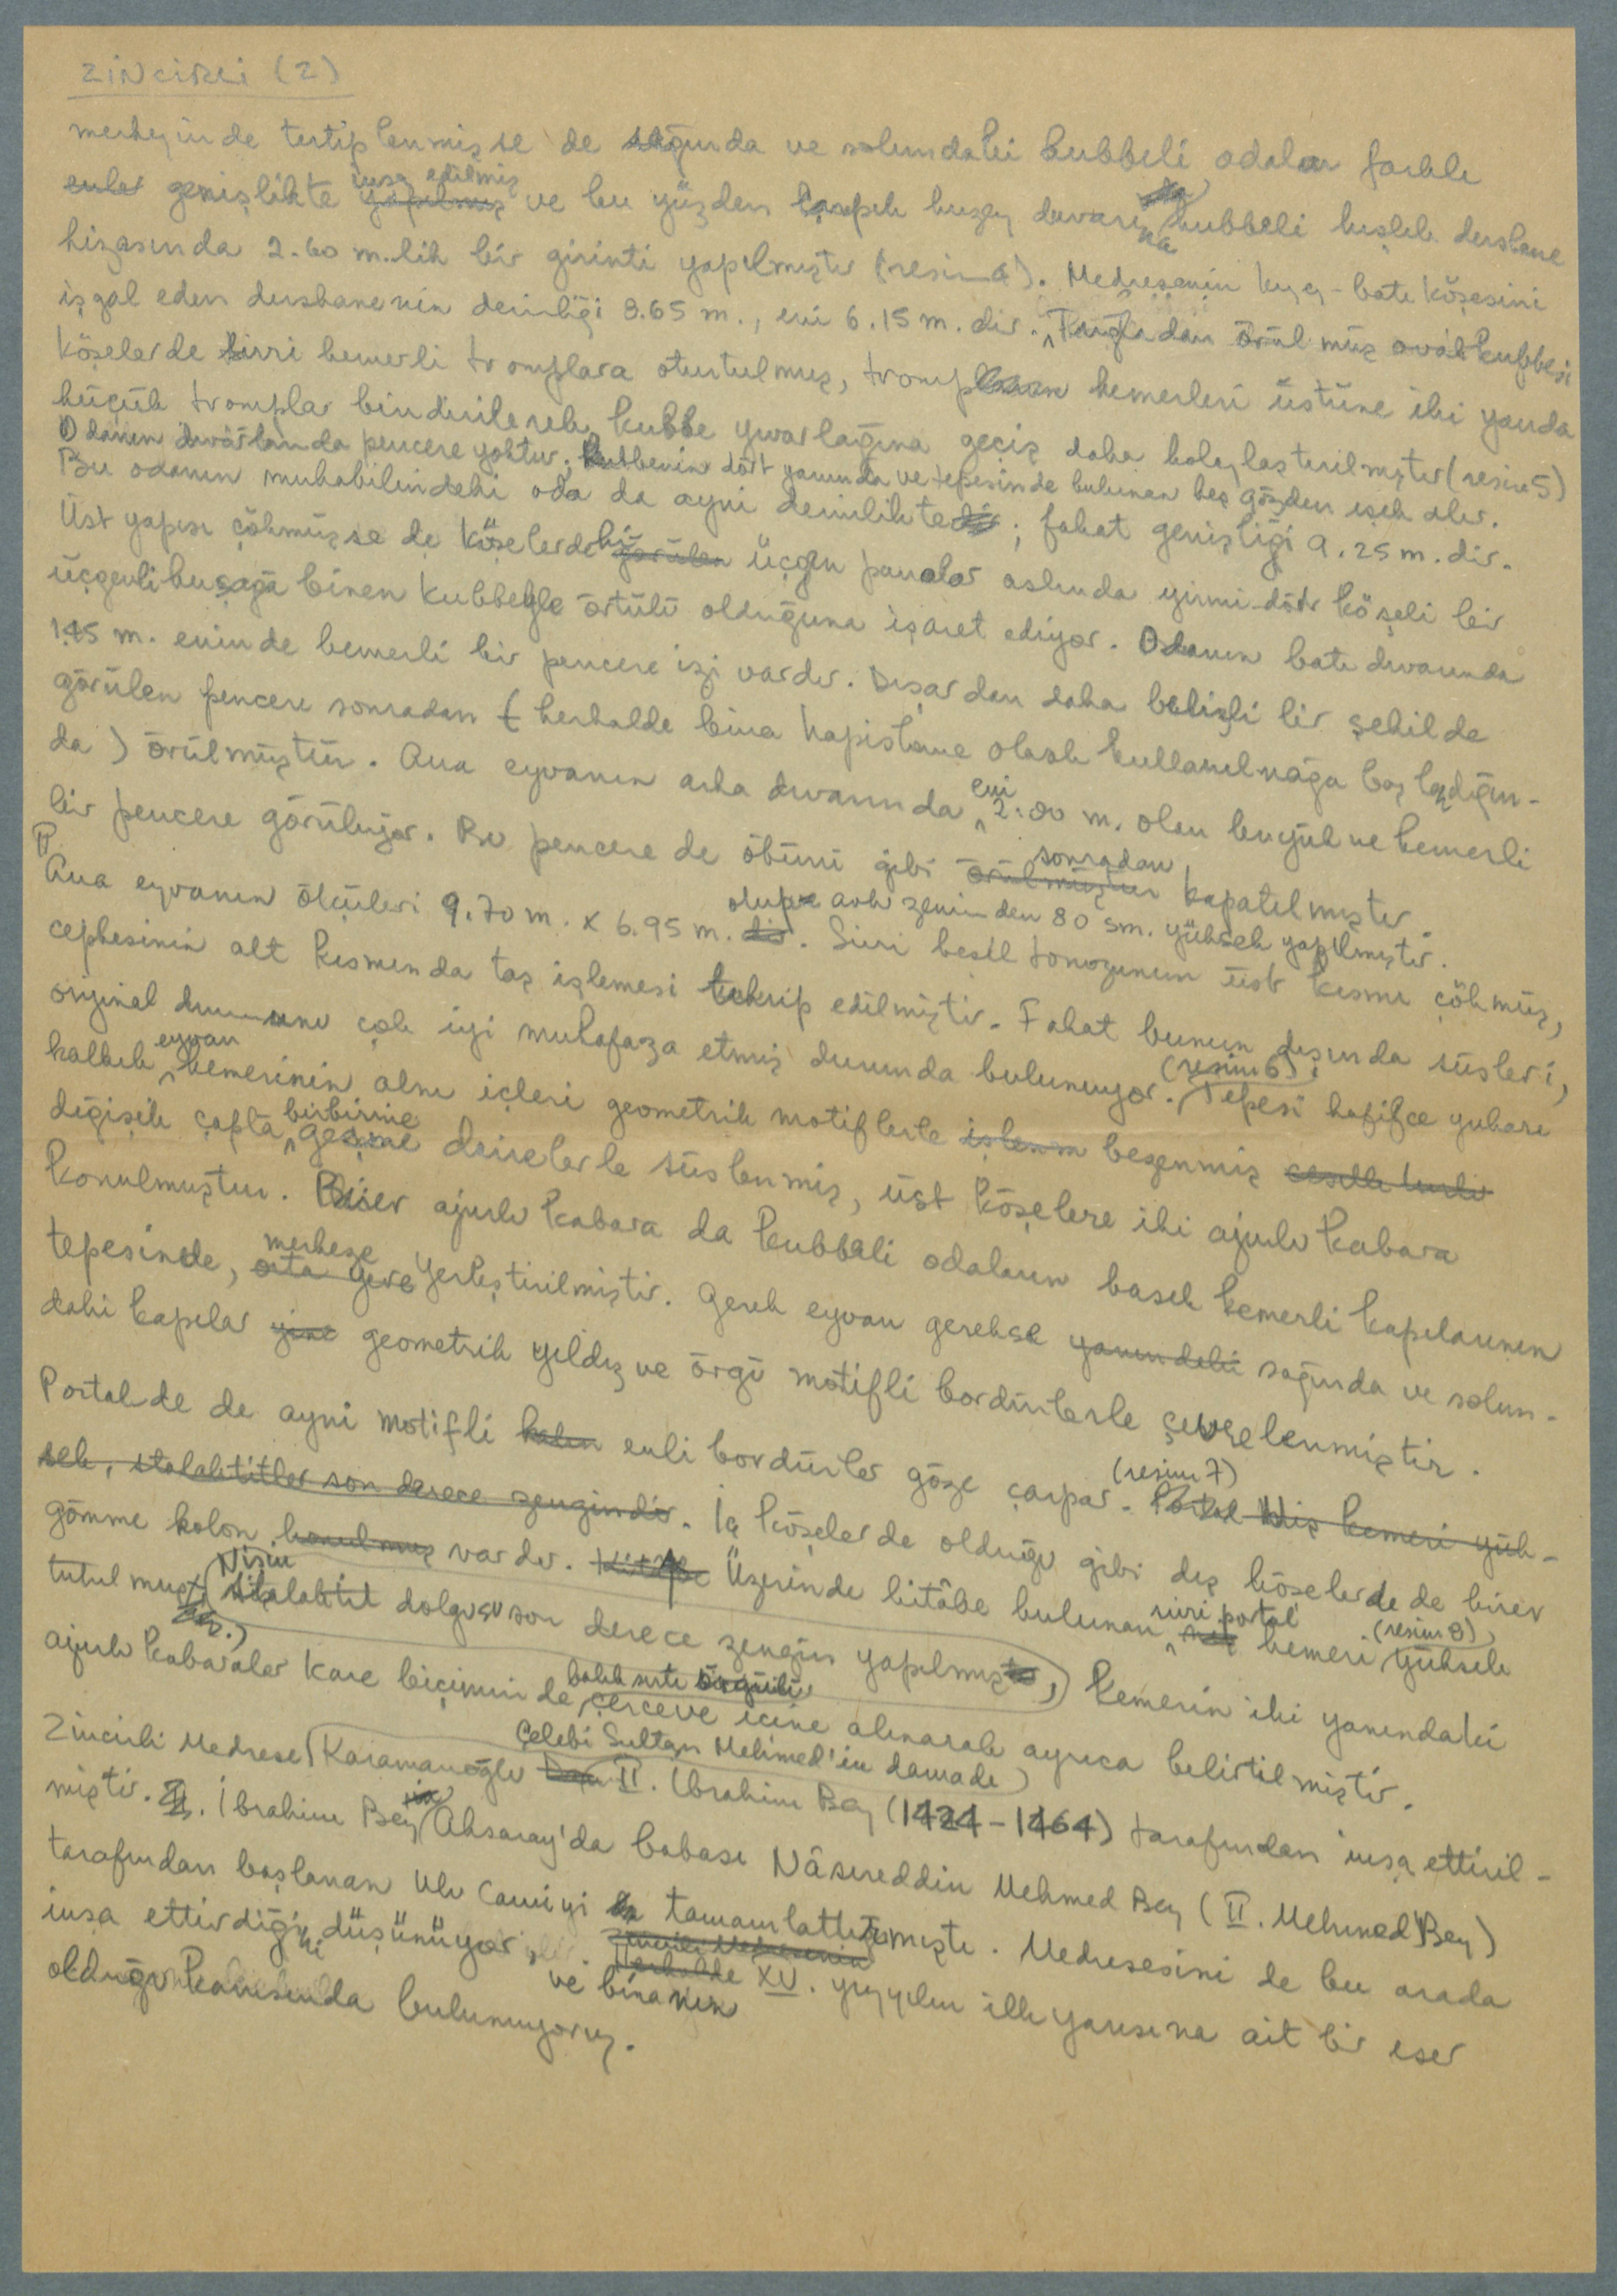 ZiNCiRLi (2)
merkezinde tertiplenmişse de sağında ve solundaki kubbeli odalar farklı
enler genişlikte yapılmış inşa edilmiş ve bu yüzden kuzey duvarına kubbeli kışlık dershane
hizasında 2.60 m.lik bir girinti yapılmıştır (resim 4). Medresenin kuzey-batı köşesini
işgal eden dershanenin derinliği 8.65 m., eni 6.15 m. dir. Tuğladan örülmüş oval kubbesi
köşelerde sivri kemerli tromplara oturtulmuş, tromp kemerleri üstüne iki yanda
küçük tromplar bindirilerek kubbe yuvarlağına geçiş daha kolaylaştırılmıştır (resim 5)
Odanın duvarlarında pencere yoktur; kubbenin dört yanında ve tepesinde bulunan beş gözden ışık alır.
Bu odanın mukabilindeki oda da ayni derinliktedir; fakat genişliği 9.25 m. dir.
Üst yapısı çökmüşse de köşelerdeki görülen üçgen panolar aslında yirmi dört köşeli bir
üçgenli kuşağa binen kubbeyle örtülü olduğuna işaret ediyor. Odanın batı duvarında
1.45 m. eninde kemerli bir pencere izi vardır. Dışardan daha belirli bir şekilde
görülen pencere sonradan (herhalde bina hapishane olarak kullanılmağa başladığın-
da) örülmüştür. Ana eyvanın arka duvarında eni 2.00 m. olan büyük ve kemerli
bir pencere görülüyor. Bu pencere de öbürü gibi örülmüştür sonradan kapatılmıştır.
Ana eyvanın ölçüleri 9.70 m. x 6.95 m. dir. olup avlu zeminden 80 sm. yüksek yapılmıştır.
Sivri beşik tonozunun üst kısmı çökmüş,
cephesinin alt kısmında taş işlemesi tahrip edilmiştir. Fakat bunun dışında süsleri,
orijinal durumunu çok iyi muhafaza etmiş durumda bulunuyor. (resim 6) Tepesi hafifçe yukarı
kalkık eyvan kemerinin alnı içleri geometrik motiflerle işlenm bezenmiş
değişik çapta birbirine geçme dairelerle süslenmiş, üst köşelere iki ajurlu kabara
konulmuştur. Birer ajurlu kabara da kubbeli odaların basık kemerli kapılarının
tepesinde, orta yere merkeze yerleştirilmiştir. Gerek eyvan gerekse yanındaki sağında ve solun-
daki kapılar yine geometrik yıldız ve örgü motifli bordürlerle çevrelenmiştir.
Portalde de ayni motifli kalın enli bordürler göze çarpar. (resim 7) Portal niş kemeri yük-
sek, stalaktitler son derece zengindir. İç köşelerde olduğu gibi dış köşelerde de birer
gömme kolon konulmuş vardır. Kitabe Üzerinde kitâbe bulunan sivri portal niş kemeri (resim 8) yüksek
tutulmuştur. Nişin stalaktit dolgusu son derece zengin yapılmıştır, Kemerin iki yanındaki
ajurlu kabaralar kare biçiminde balık sırtı örgülü çerceve içine alınarak ayrıca belirtilmiştir.
Zincirli Medrese Karamanoğlu Çelebi Sultan Mehmed'in damadı II. İbrahim Bey (1424-1464) tarafından inşa ettiril-
miştir. II. İbrahim Bey'in Aksaray'da babası Nâsıreddin Mehmed Bey (II. Mehmed Bey)
tarafından başlanan Ulu Camiyi tamamlattırmıştı. Medresesini de bu arada
inşa ettirdiğini düşünüyor, Zincirli Medresenin Herhalde ve binanın XV. yüzyılın ilk yarısına ait bir eser
olduğu kanısında bulunuyoruz.